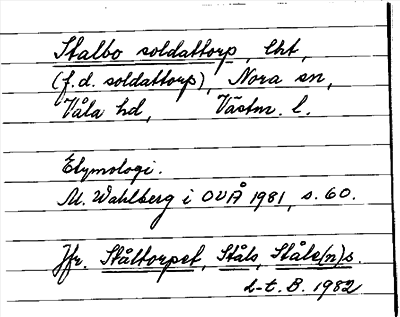 Stalbo soldattorp, lht,
(f.d. soldattorp), Nora sn,
Våla hd, Västm. l.
Etymologi.
M. Wahlberg i OUÅ 1981, s. 60.
Jfr. Ståltorpet, Ståls, Ståle(n)s.
L-t. B. 1982